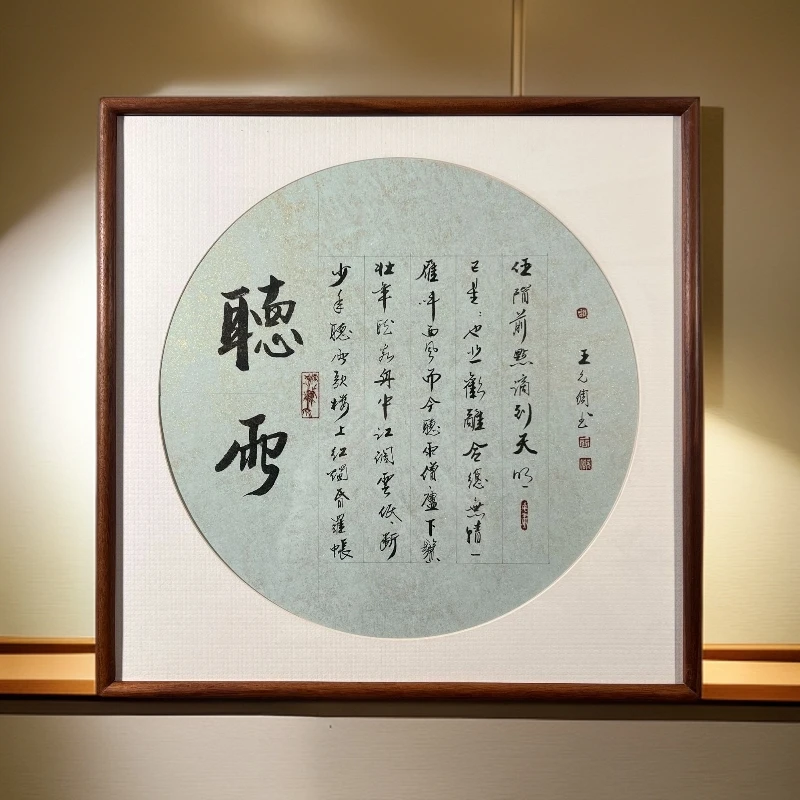 聽雨
少年聽雨歌樓上紅燭昏羅帳
壯年聽雨客舟中江闊雲低斷
雁叫西風而今聽雨僧廬下鬢
已星〻也悲歡離合總無情一
任階前點滴到天明
王書